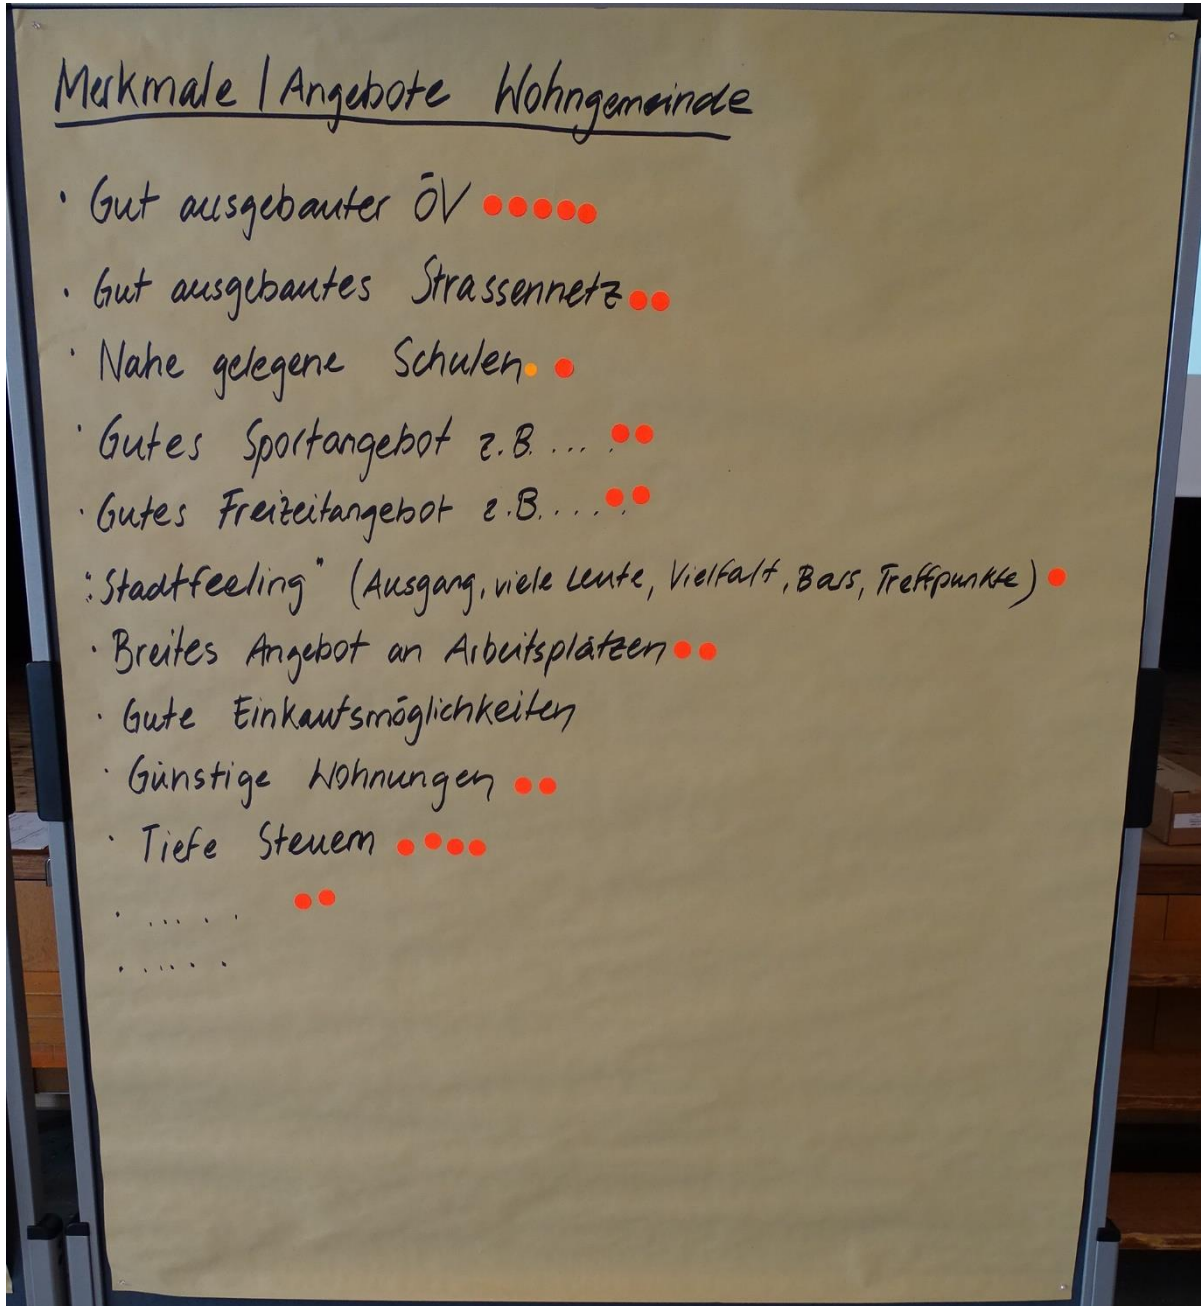 Merkmale / Angebote Wohngemeinde
· Gut ausgebauter ÖV
· Gut ausgebautes Strassennetz
· Nahe gelegene Schulen
· Gutes Sportangebot z.B. ....
· Gutes Freizeitangebot z.B. .....
· "Stadtfeeling" (Ausgang, viele Leute, Vielfalt, Bars, Treffpunkte)
· Breites Angebot an Arbeitsplätzen
· Gute Einkaufsmöglichkeiten
· Günstige Wohnungen
· Tiefe Steuern
· .....
· .....